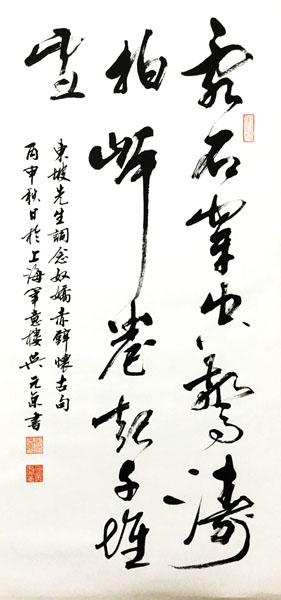 亂石穿空驚濤
拍岸卷起千堆
雪
東坡先生詞念奴嬌赤壁懷古句
丙申秋日於上海意樓吳元京書